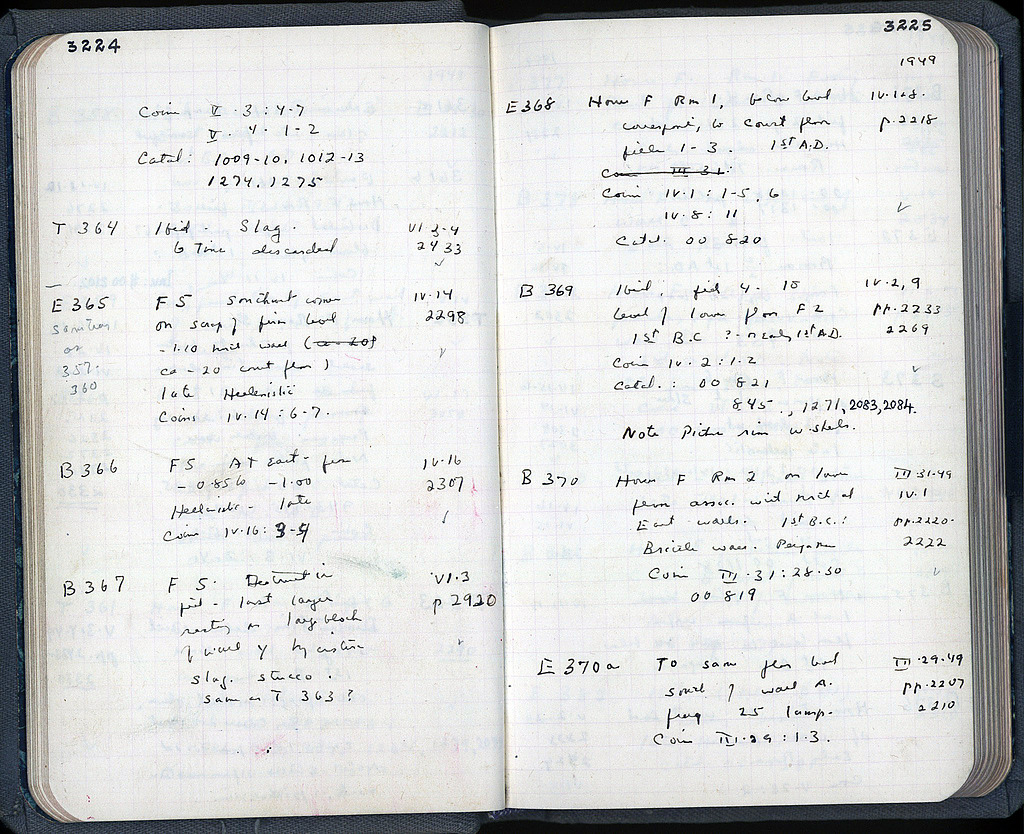 3224
Coins V · 3 : 4-7
V · 4 · 1-2
Catal: 1009-10, 1012-13
1274, 1275
T 364 Ibid. Slag. VI 3-4
6 Tins discarded 2433
E 365 F 5 southwest corner IV·14
on scrap of firm level 2298
or -1.10 wall (ca - 20)
357. ca -20 court floor)
360 late Hellenistic
Coins IV·14 : 6-7.
B 366 F 5 At East - IV·16
-0.85 to -1.00 2307
Hellenistic - late
Coins IV·16: 3-4
B 367 F 5. Destruct in VI·3
pit - last layer p 2920
resting on large block
of wall y by cistern
slag. stucco.
same as T 363 ?
3225
1949
E 368 House F Rm 1, below level IV·1+8.
correspond, to Court floor p. 2218
field 1-3. 1st A.D.
Coin III 31:
Coins IV·1 : 1-5, 6
IV·8 : 11
Catal. 00 820
B 369 Ibid. field 4 - 10 IV·2, 9
level of lower floor F 2 pp. 2233
1st B.C ? - early 1st A.D. 2269
Coin IV·2 : 1·2
Catal. : 00 821
845., 1271, 2083, 2084.
Note Picture rim w. shells.
B 370 House F Rm 2 on lower III 31·49
floor assoc. with north and IV·1
East walls. 1st B.C. : pp. 2220-
ware. Pergamene 2222
Coin III·31 : 28·30
00 819
E 370a To same floor level III·29·49
south of wall A. pp. 2207
frag 25 lamp. 2210
Coin III·29 : 1·3.